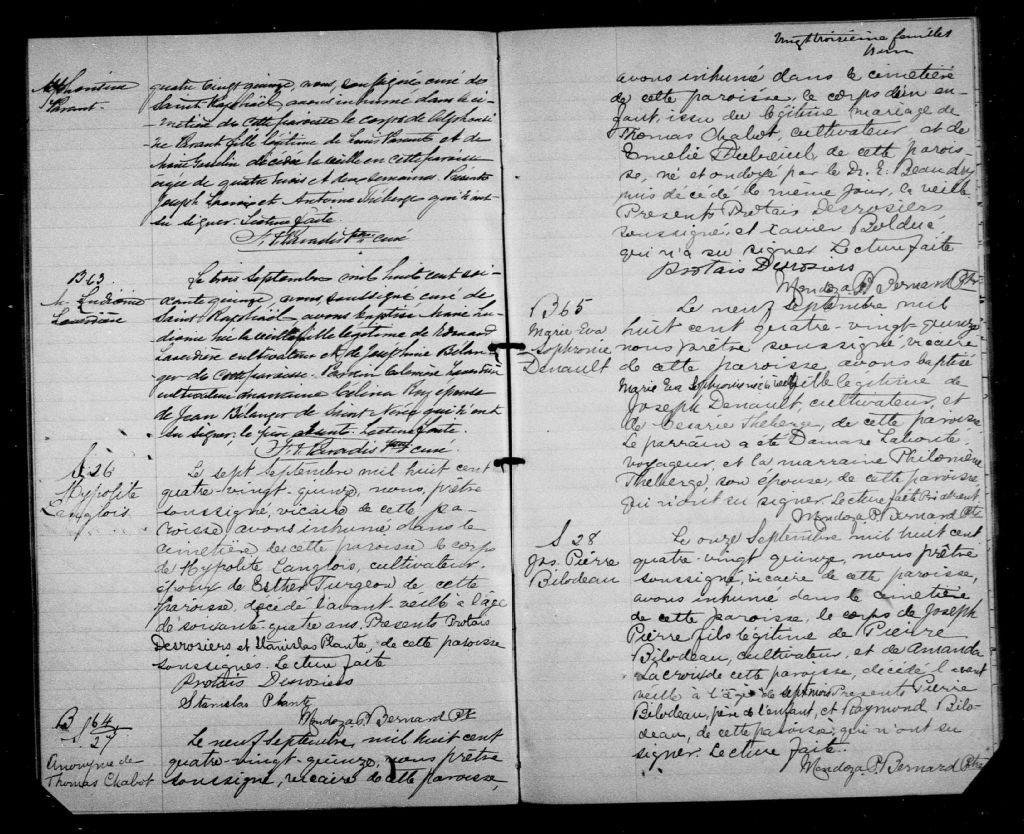 Alphonsine
Parant
quatre vingt quinze, nous, soussigné curé de
Saint Raphaël avons inhumé dans le ci-
-metière de cette paroisse le corps de Alphonsi-
ne Parant fille légitime de Louis Parant et de
Marie décédée la veille en cette paroisse
agée de quatre mois et deux semaines. Présents
Joseph et Antoine Théberge qui n'ont
su signer. Lecture faite.
Paradis Ptre curé
B 63
M.
Le trois septembre mil huit cent soi-
xante quinze, nous, soussigné curé de
Saint Raphaël avons baptisé Marie
née la veille fille légitime de
cultivateur et de Joséphine Bélan-
ger de cette paroisse. Parrain
cultivateur marraine Célina Roy épouse
de Jean Bélanger de Saint qui n'ont
su signer. le père absent. Lecture faite.
Paradis Ptre curé
S 26
Hypolite
Langlois
Le sept septembre mil huit cent
quatre-vingt-quinze, nous, prêtre
soussigné, vicaire de cette pa-
roisse avons inhumé dans le
cimetière de cette paroisse le corps
de Hypolite Langlois, cultivateur,
époux de Esther Turgeon de cette
paroisse, décédé l'avant-veille à l'âge
de soixante-quatre ans. Présents Protais
Desrosiers et Stanislas Plante, de cette paroisse
soussignés. Lecture faite
Protais Desrosiers
Stanislas Plante
Mendoza P. Bernard Ptre
B 64
S 27
Anonyme de
Thomas Chabot
Le neuf Septembre, mil huit cent
quatre-vingt-quinze, nous prêtre
soussigné, vicaire de cette paroisse,
Vingt troisième feuillet
avons inhumé dans le cimetière
de cette paroisse, le corps d'un en-
fant, issu du légitime mariage de
Thomas Chabot, cultivateur, et de
Emelie Dubreuil, de cette parois-
se, né et ondoyé par le Dr. E. Beaudry
puis décédé le même jour, la veille
Présents Protais Desrosiers
soussigné, et Xavier Bolduc,
qui n'a su signer Lecture faite
Protais Desrosiers
Mendoza P. Bernard Ptre
B 65
Marie Eva
Sophronie
Denault
Le neuf Septembre mil
huit cent quatre-vingt-quinze
nous prêtre soussigné, vicaire
de cette paroisse avons baptisé
Marie Eva Sophronie née la veille fille légitime de
Joseph Denault, cultivateur, et
de Césarie Théberge, de cette paroisse
Le parrain a été Damase Laborté,
voyageur, et la marraine Philomène
Théberge, son épouse, de cette paroisse,
qui n'ont su signer Lecture faite
Mendoza P. Bernard Ptre
S 28
Jos. Pierre
Bilodeau
Le onze Septembre mil huit cent
quatre-vingt quinze, nous prêtre
soussigné, vicaire de cette paroisse,
avons inhumé dans le cimetière
de cette paroisse, le corps de Joseph
Pierre fils légitime de Pierre
Bilodeau, cultivateur, et de Amanda
Lacroix de cette paroisse, décédé l'avant
veille à l'âge de sept mois Présents Pierre
Bilodeau, père de l'enfant, et Raymond Bilo-
deau, de cette paroisse, qui n'ont su
signer Lecture faite.
Mendoza P. Bernard Ptre